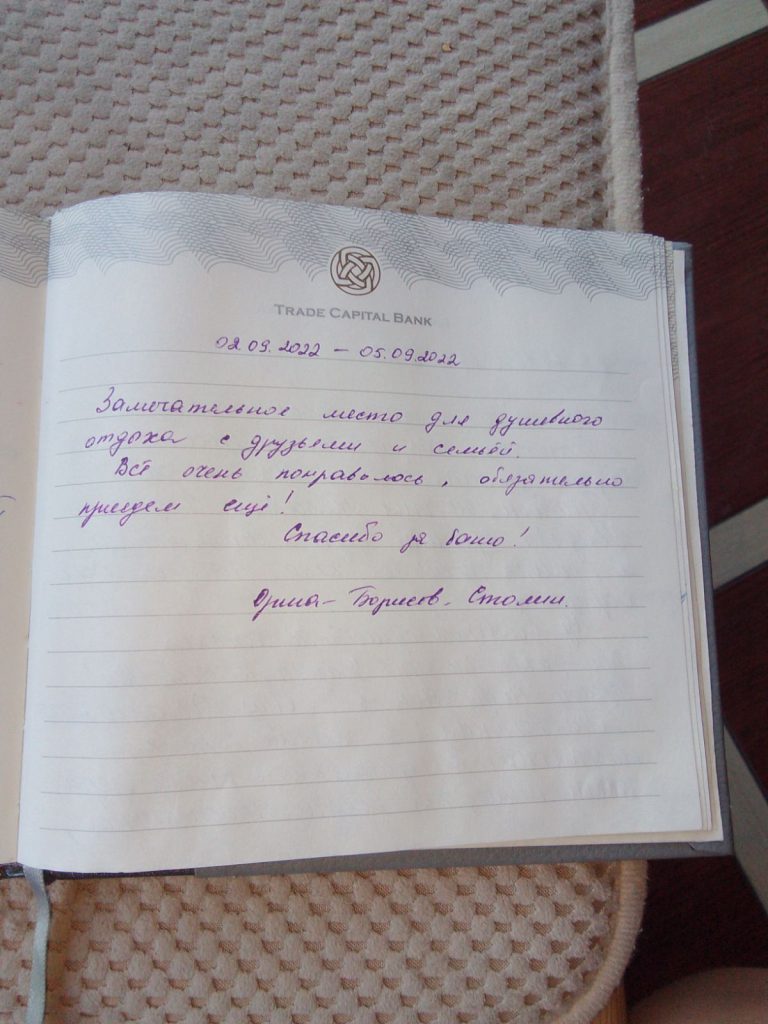 TRADE CAPITAL BANK
02.09.2022 – 05.09.2022
Замечательное место для душевного
отдыха с друзьями и семьёй.
Всё очень понравилось, обязательно
приедем ещё!
Спасибо за баню!
Орша – Борисов - Столин.